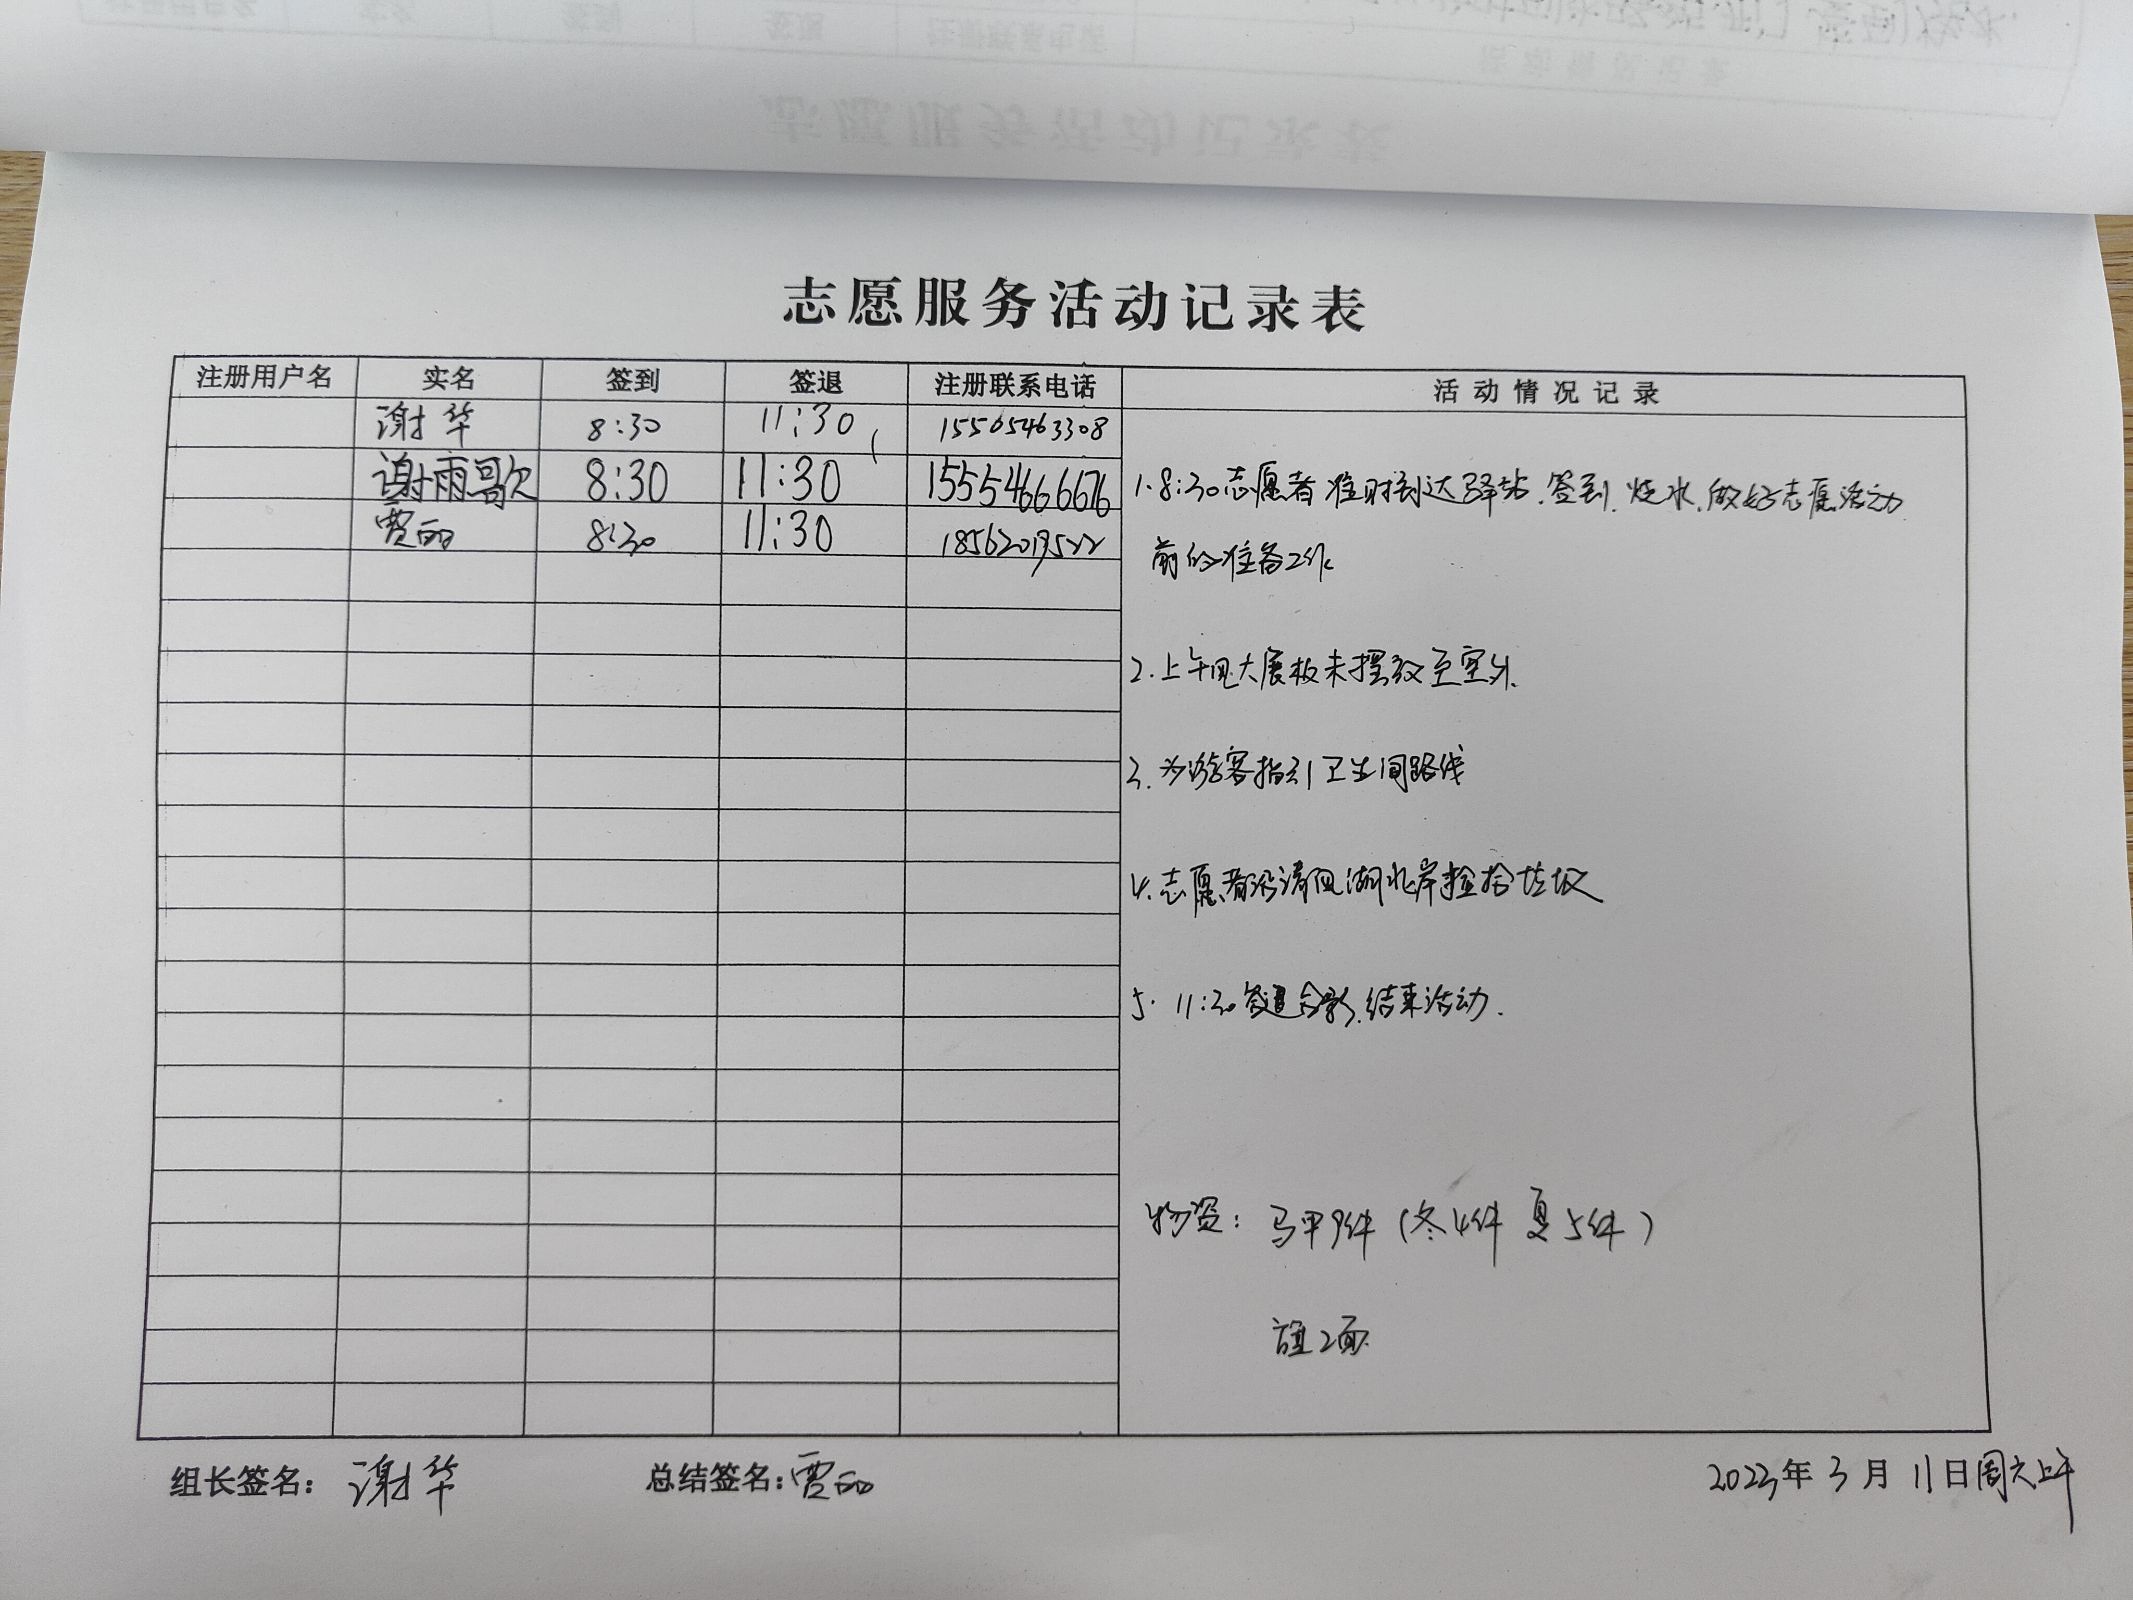 志愿服务活动记录表
注册用户名 实名 签到 签退 注册联系电话 活动情况记录
谢华 8:30 11:30 15565463308
谢雨歌 8:30 11:30 15554666676
贾丽 8:30 11:30
1.8:30志愿者准时到达驿站.签到.烧水.做好志愿活动
前的准备工作
2.上午因大展板未摆放至室外.
3.为游客指引卫生间路线
4.志愿者沿清风湖北岸捡拾垃圾
5.11:30签退合影.结束活动.
物资:马甲9件(冬4件 夏5件)
旗2面
组长签名:谢华 总结签名:贾丽 2023年3月11日周六上午